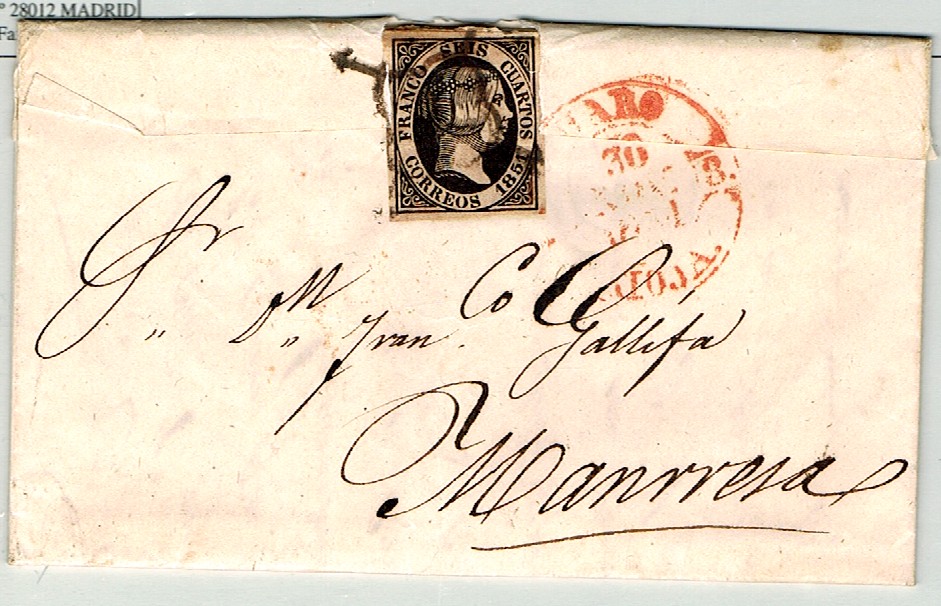 º 28012 MADRID
Fa
FRANCO SEIS CUARTOS
CORREOS 1851
HARO
30
RIOJA.
Sr
„ Dn „ Franco Gallifa
Manrresa